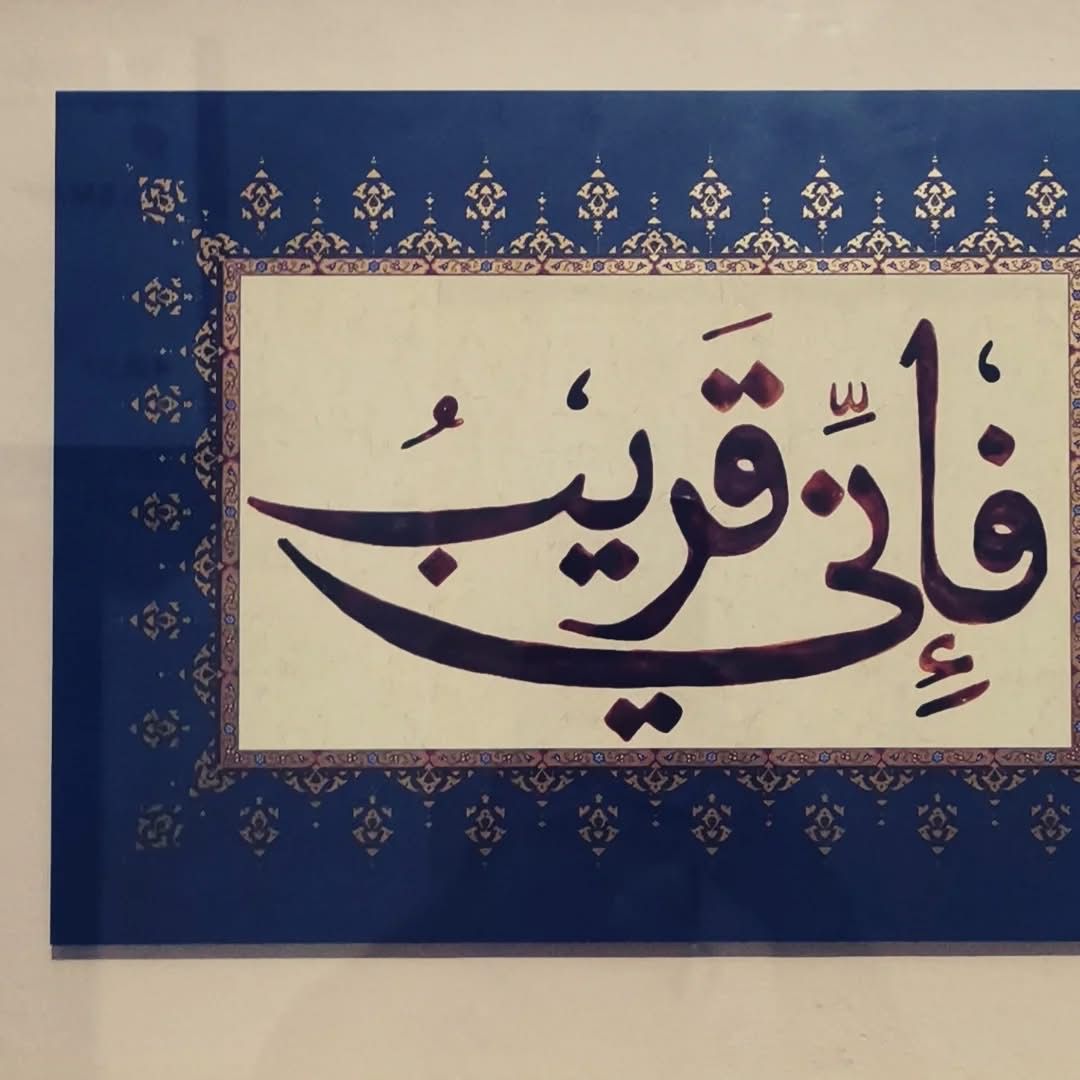 فَإِنِّي قَرِيبُ